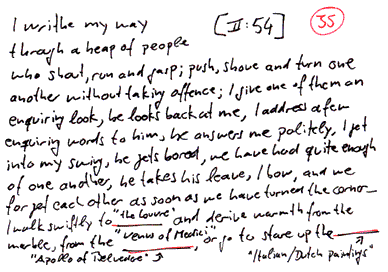 I writhe my way [II:54] 35
through a heap of people
who shout, run and gasp; push, shove and turn one
another without taking offence; I give one of them an
enquiring look, he looks back at me, I address a few
enquiring words to him, he answers me politely, I get
into my swing, he gets bored, we have had quite enough
of one another, he takes his leave, I bow, and we
forget each other as soon as we have turned the corner
I walk swiftly to "the Louvre" and derive warmth from the
marble, from the "Venus of Medici", or go to store up the
"Apollo of Belvedere" "Italian/Dutch paintings"